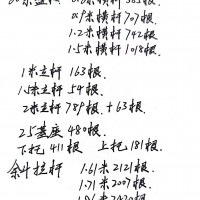 0.9米横杆707根
1.2米横杆742根
1.5米横杆1018根
1米立杆163根
1.5米立杆54根
2米立杆789根+63根
25基座480根
下托411根 上托181根
余斗拉杆 1.61米2121根
1.71米2007根